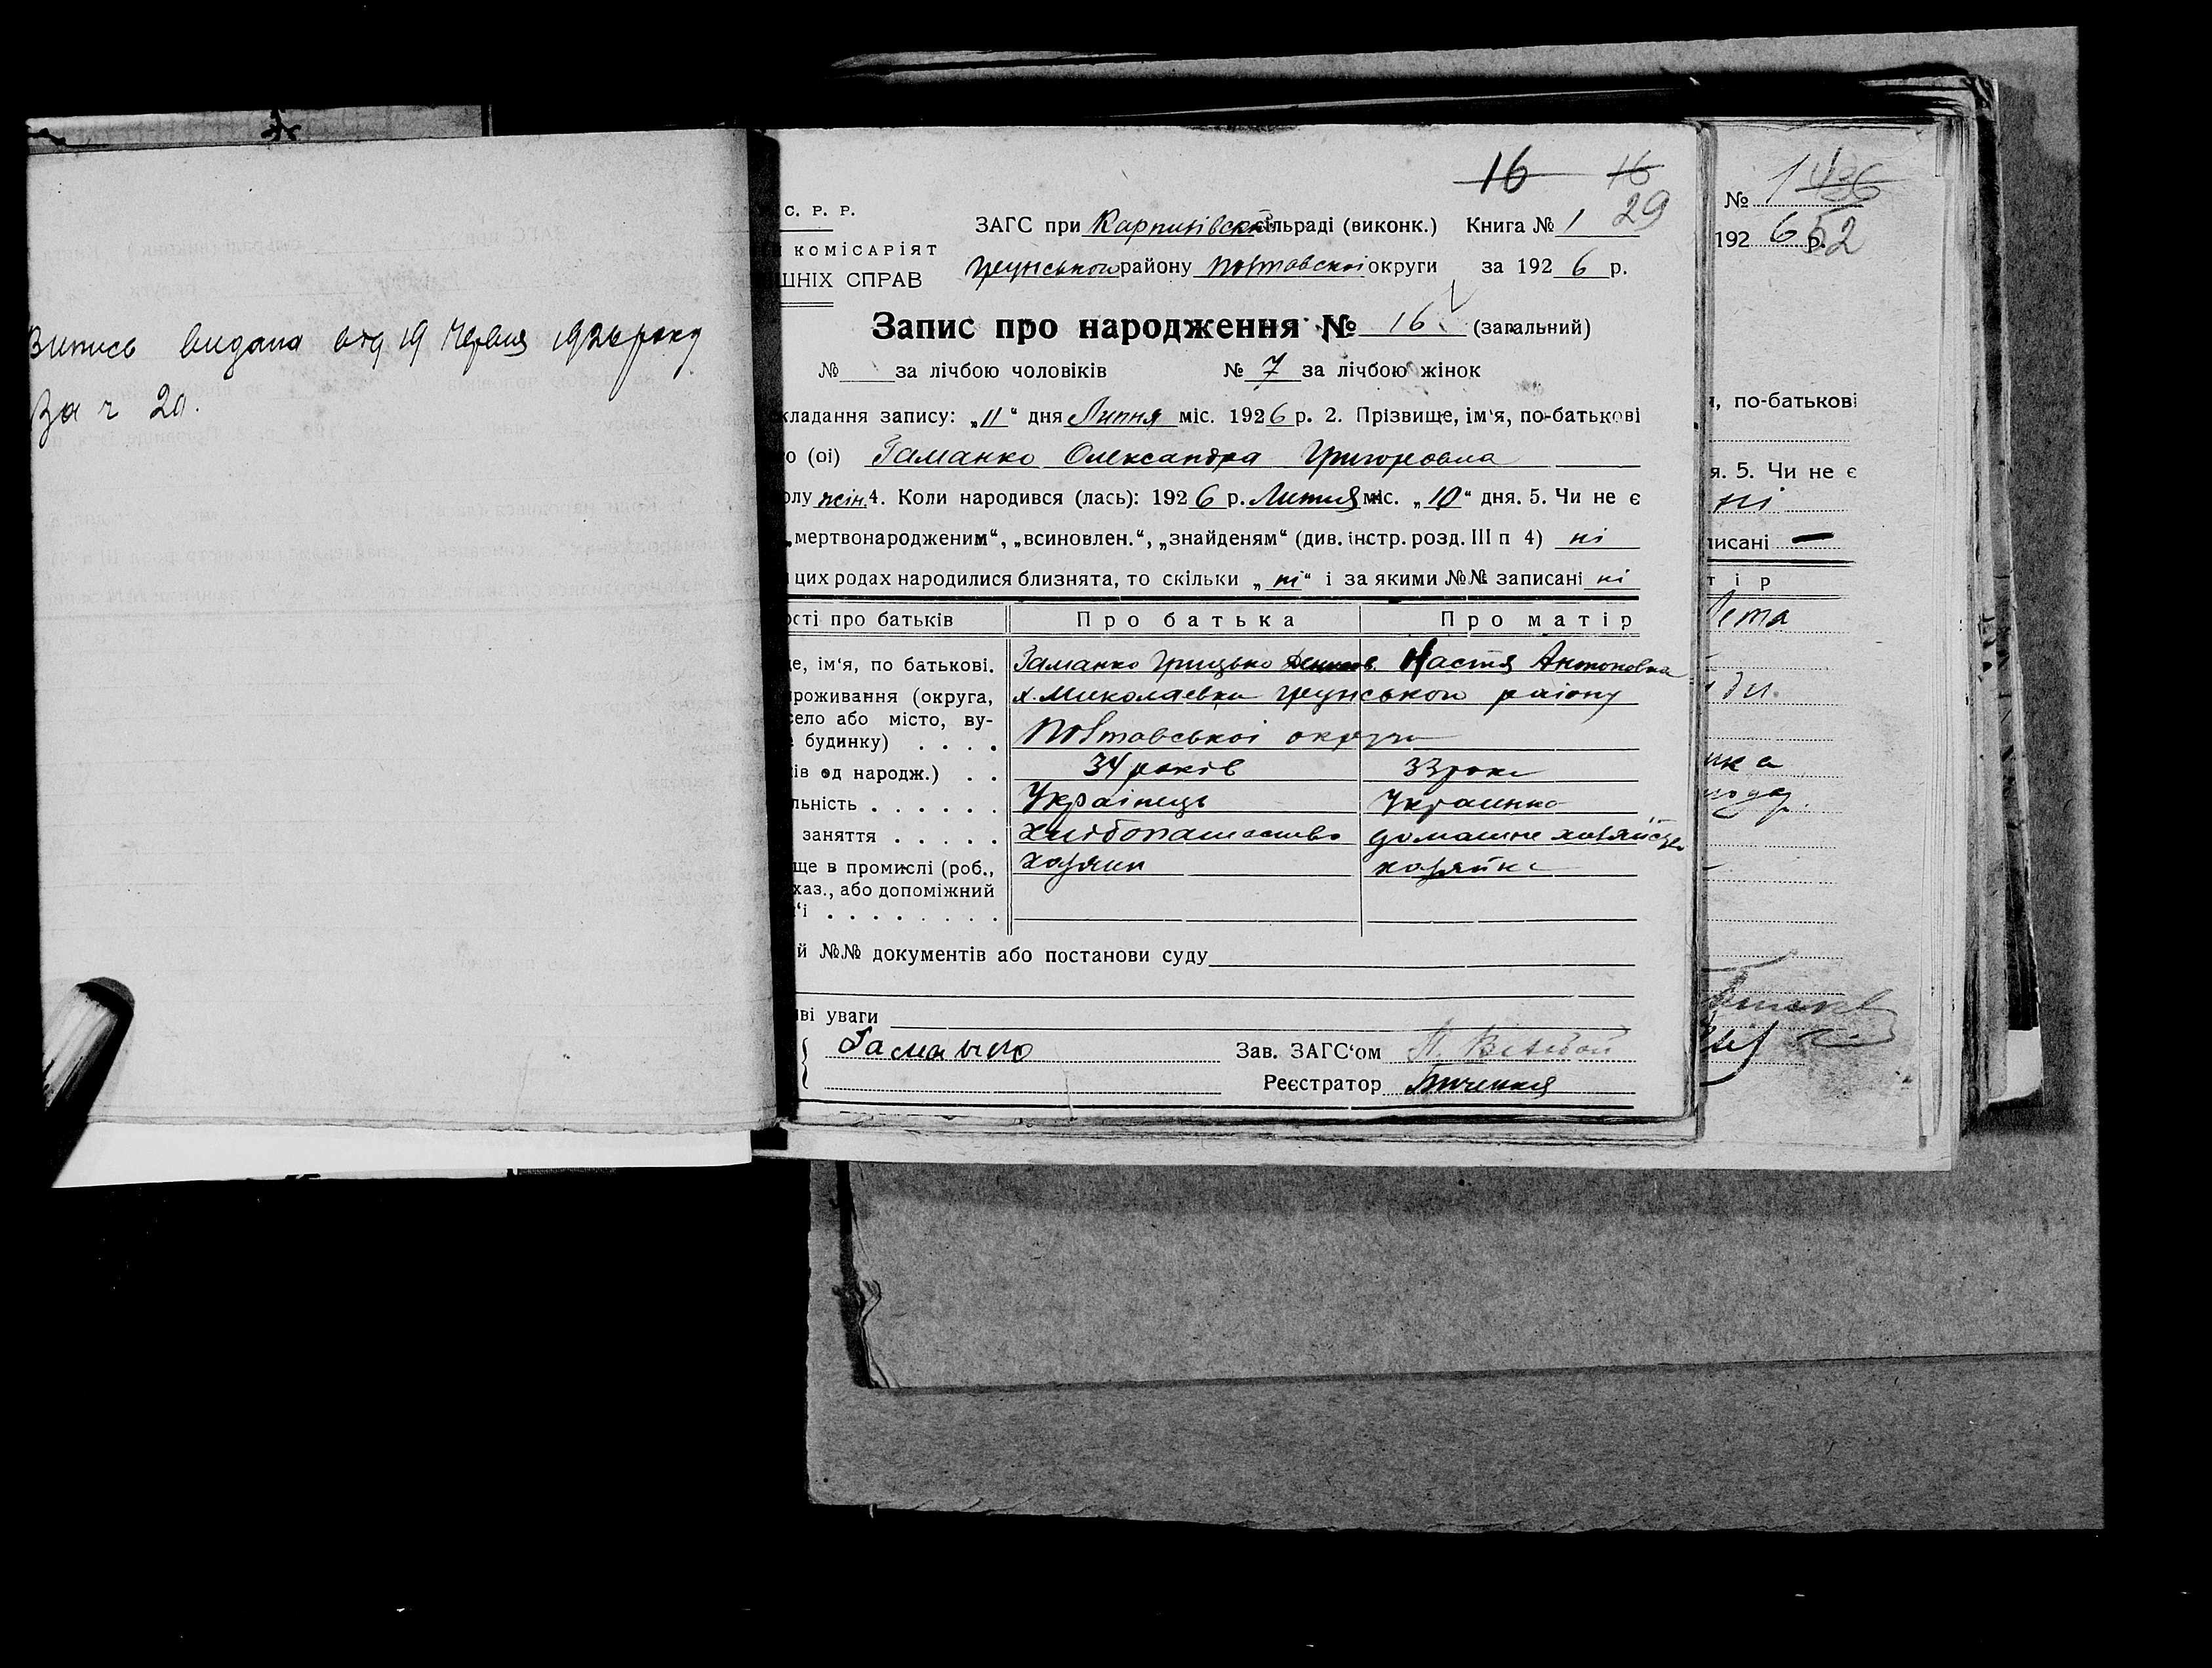 Випись видана від 19 Червня 1926 року
За ч 20.
16 16
29
С. Р. Р.
КОМІСАРІЯТ
ШНІХ СПРАВ
ЗАГС при Карпилівській сільраді (виконк.) Книга № 1
Грунського району Полтавскоі округи за 1926 р.
Запис про народження № 16. (загальний)
№ за лічбою чоловіків № 7 за лічбою жінок
кладання запису: „11“ дня Липня міс. 1926 р. 2. Прізвище, ім‘я, по-батькові
о (ої) Гаманко Олександра Григоровна
олу жін. 4. Коли народився (лась): 1926 р. Липня міс. „10“ дня. 5. Чи не є
„мертвонародженим“, „всиновлен.“, „знайденям“ (див. інстр. розд. III п 4) ні
цих родах народилися близнята, то скільки „ні“ і за якими №№ записані ні
ості про батьків Про батька Про матір
е, ім‘я, по батькові. Гаманко Грицько Денисов. Настя Антоновна
роживання (округа, х. Миколаевка Грунського раіону
село або місто, ву-
будинку) . . . . Полтавськоі округи
ів од народж.) . . 34 років 33 роки
льність . . . . . . Украінець Украинка
заняття . . . . . хлібопашество домашне хозяйство
ще в промислі (роб., хазяин хозяйка
хаз., або допоміжний
‘і . . . . . . . .
й №№ документів або постанови суду
ві уваги
Гаманко Зав. ЗАГС‘ом
Реєстратор
№ 1
1926 р. 52
, по-батькові
я. 5. Чи не є
ні
писані —
тір